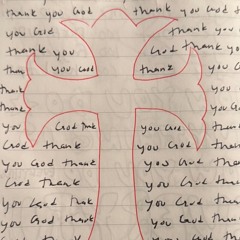 thank you God thank you God
you God thank you
thank you God thank you
thank you God thank
thank you God
thank thank
you God thank you God
God thank God thank
you God thank you God thank
God thank God thank
you God thank you God thank
you God thank you God thank
God thank God